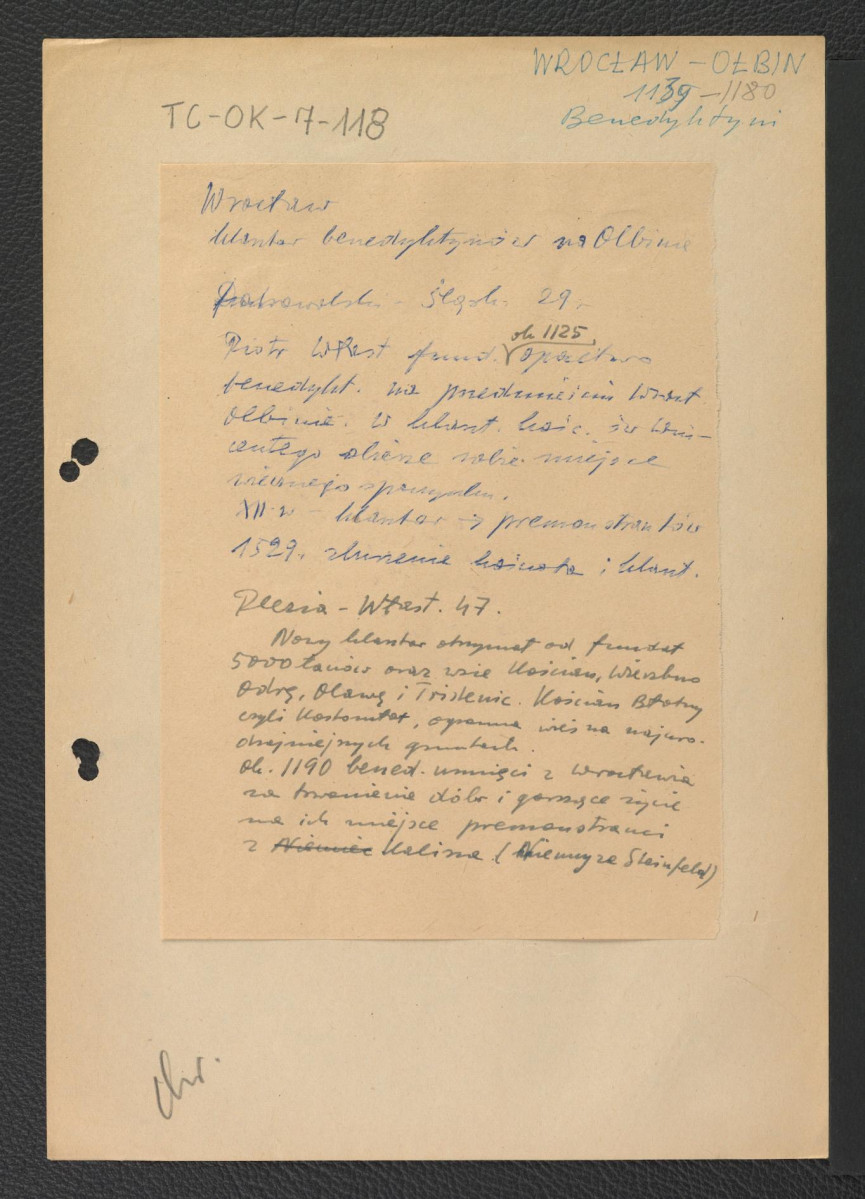 WROCŁAW – OŁBIN
1139 – 1180
Benedyktyni
TC-OK-7-118
Wrocław
klasztor benedyktynów na Ołbinie
– Śląsk. 29.
ok 1125
Piotr Włast fund. opactwo
benedykt. na przedmieściu Wrocł.
Ołbinie. W klaszt. kośc. św Win-
centego obierze sobie miejsce
wiecznego spoczynku.
XII w – klasztor → premonstrantów
1529. zburzenie kościoła i klaszt.
Plezia – Włast. 47.
Nowy klasztor otrzymał od fundat
5000 łanów oraz wsie Kościan, Wierzbno
Odrę, Oławę i Kościan Błotny
czyli Kostomłot, ogromna wieś na najuro-
dzajniejszych gruntach.
ok. 1190 bened. usunięci z Wrocławia
za trwonienie dóbr i gorszące życie
na ich miejsce premonstranci
z Niemiec Kalisza (Niemcy ze Steinfeld)